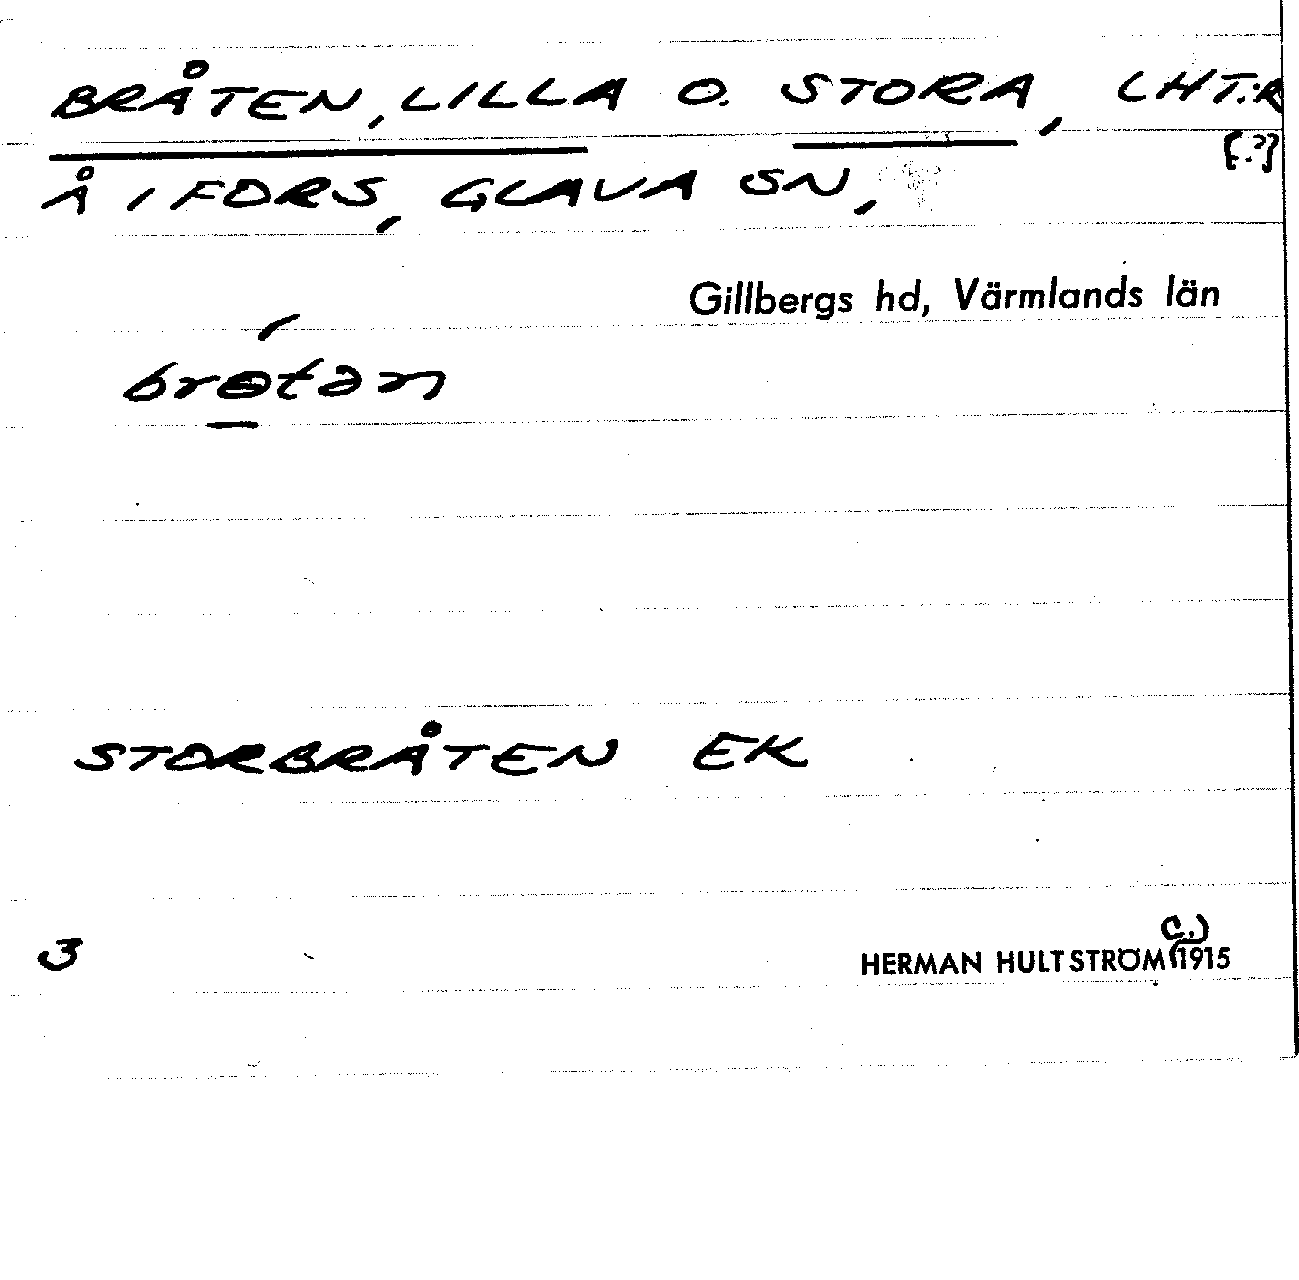 BRÅTEN, LILLA O. STORA, LHT:R
[.?]
Å I FORS, GLAVA SN,
Gillbergs hd, Värmlands län
brɵtən
STORBRÅTEN EK
3
HERMAN HULTSTRÖM (1915
C.)